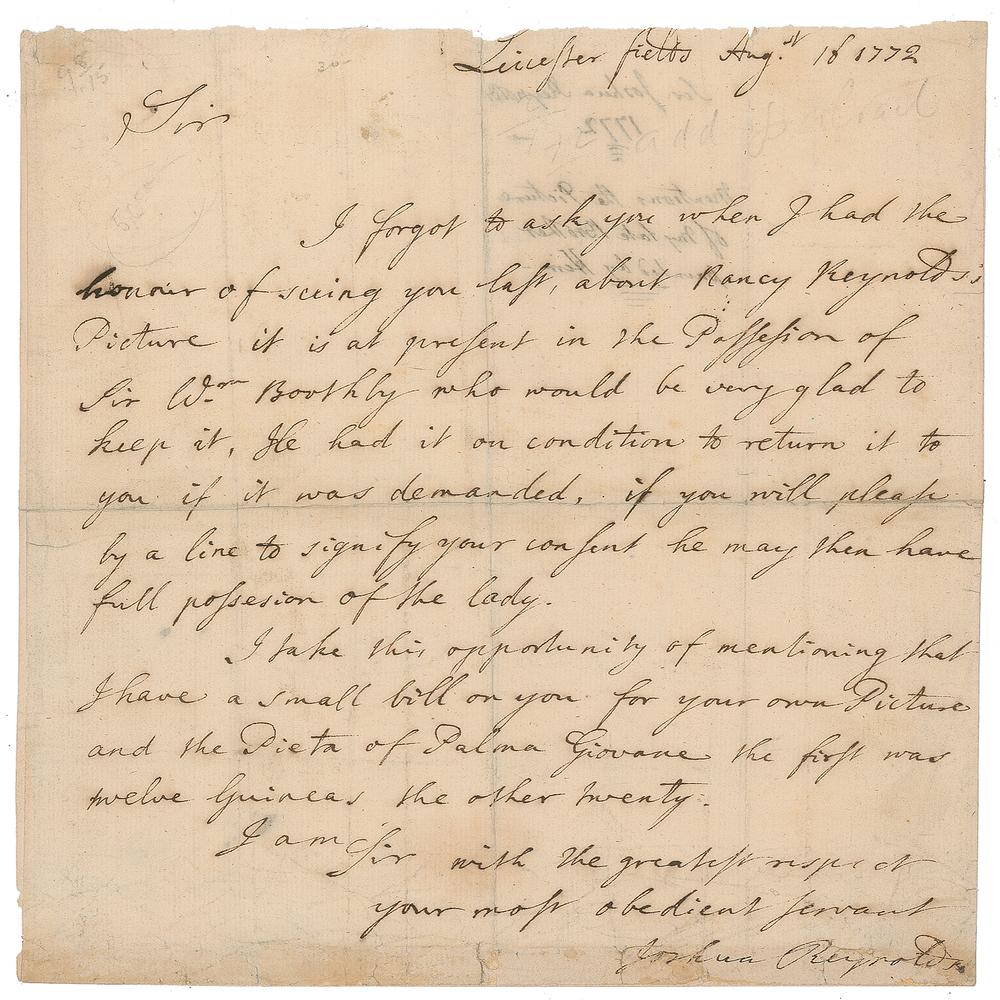 Leicester fields Aug.st 16 1772
Sir
I forgot to ask you when I had the
honour of seeing you last, about Nancy Reynolds's
Picture it is at present in the Possession of
Sir Wm Boothby who would be very glad to
keep it, He had it on condition to return it to
you if it was demanded, if you will please
by a line to signify your consent he may then have
full possesion of the lady.
I take this opportunity of mentioning that
I have a small bill on you for your own Picture
and the Pieta of Palma Giovane the first was
twelve Guineas the other twenty.
I am Sir with the greatest respect
your most obedient servant
Joshua Reynolds